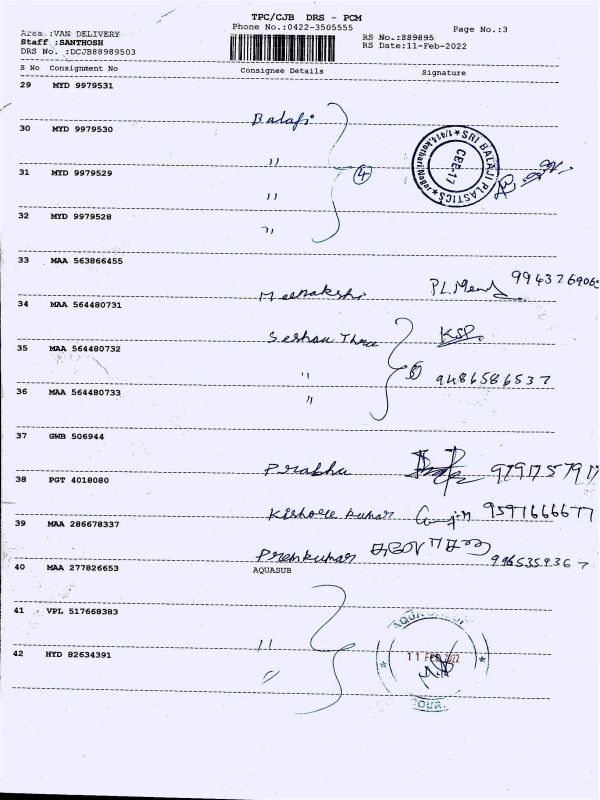 TPC/CJB DRS - PCM
Phone No.:0422-3505555
Page No.:3
Area :VAN DELIVERY
Staff :SANTHOSH
DRS No. :DCJB88989503
RS No.:889895
RS Date:11-Feb-2022
S No Consignment No Consignee Details Signature
29 MYD 9979531
Balaji
30 MYD 9979530
"
31 MYD 9979529
④
"
32 MYD 9979528
"
SRI BALAJI PLASTICS
CBE-17
33 MAA 563866455
Meenakshi 9943769065
34 MAA 564480731
Seshan KSP.
35 MAA 564480732
" 9486586537
36 MAA 564480733
"
37 GWB 506944
Prabhu
38 PGT 4018080
Kishore kumar 9597666677
39 MAA 286678337
Premkumar 9965359367
40 MAA 277826653 AQUASUB
41 VPL 517668383
"
42 HYD 82634391
"
11 FEB 2022